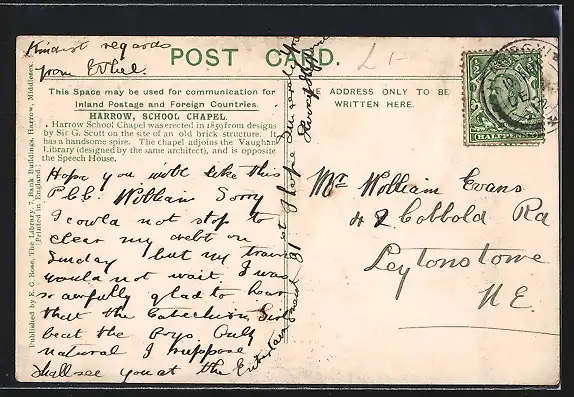 Kindest regards
from Ethel.
POST CARD.
£1-
This Space may be used for communication for
Inland Postage and Foreign Countries.
HARROW, SCHOOL CHAPEL.
Harrow School Chapel was erected in 1859 from designs
by Sir G. Scott on the site of an old brick structure. It
has a handsome spire. The chapel adjoins the Vaughan
Library (designed by the same architect), and is opposite
the Speech House.
Hope you will like this
P.C. William Sorry
I could not stop to
clear my debt on
Sunday but my train
would not wait. I was
so awfully glad to hear
that the Catechism Girls
beat the Boys. Only
natural I suppose
shall see you at the Entertainment
I hope
Sincerely
Published by E. C. Rose, The Library, 7, Bank Buildings, Harrow, Middlesex.
Printed in England.
THE ADDRESS ONLY TO BE
WRITTEN HERE.
HALFPENNY
Mr William Evans
42 Cobbold Rd
Leytonstone
N.E.